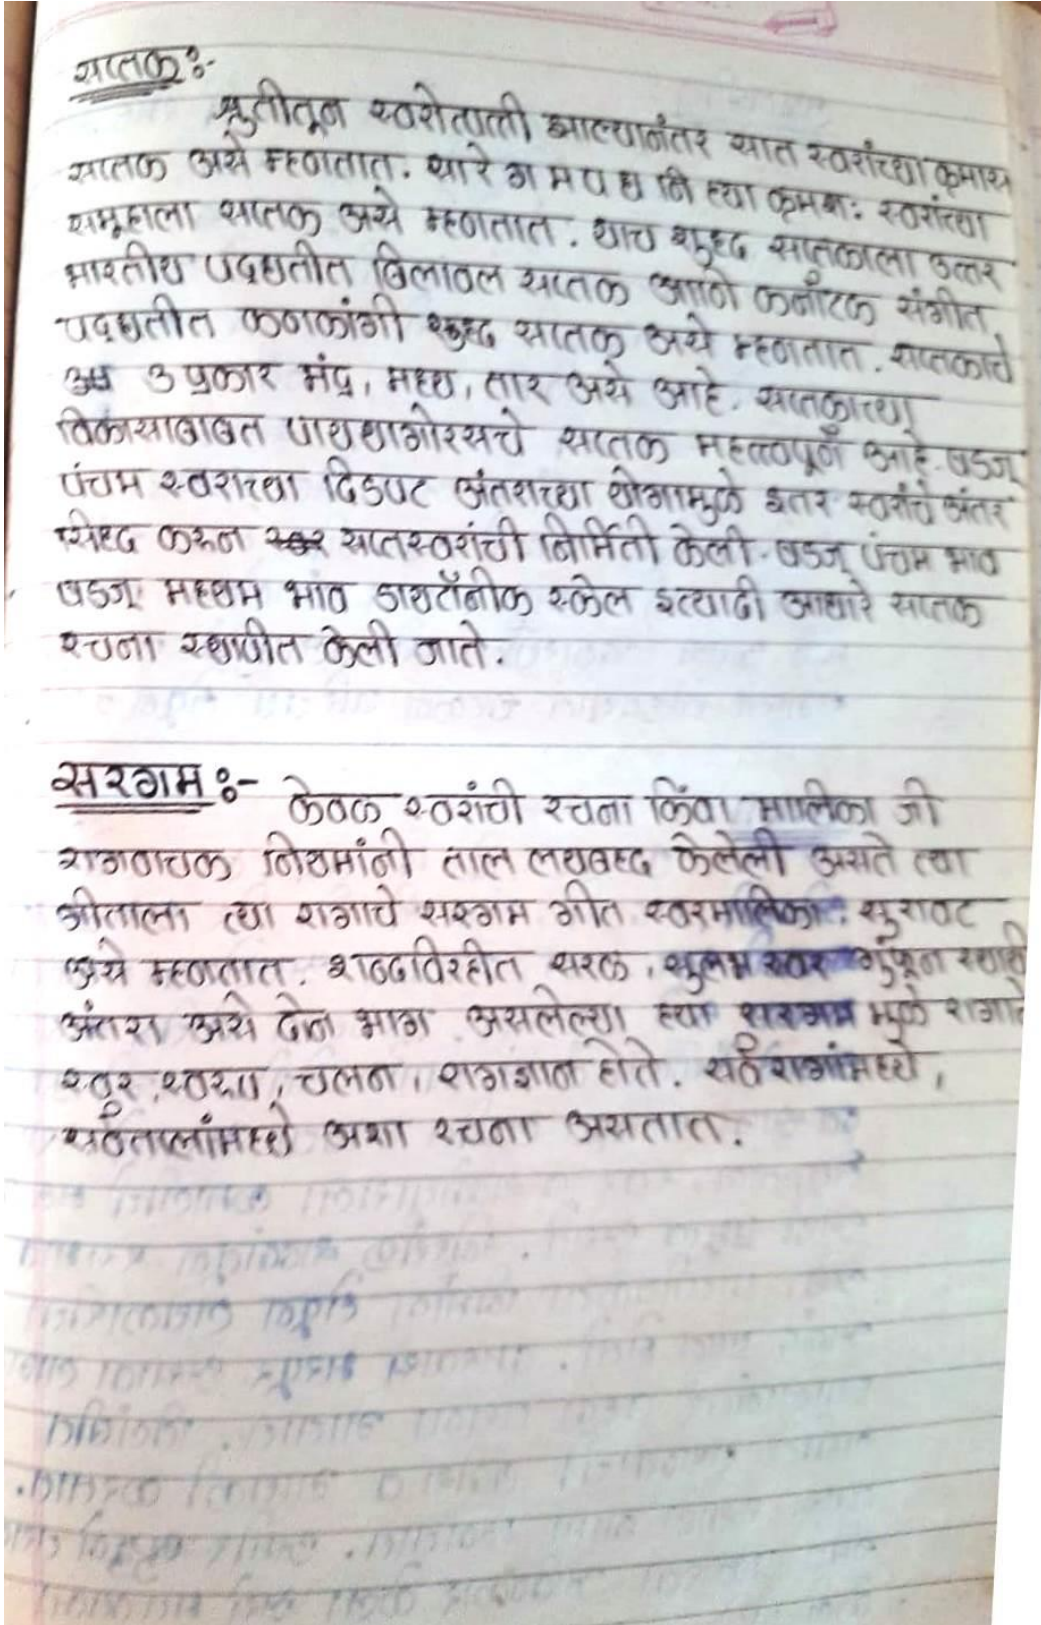 सप्तक :-
श्रुतीतून स्वरोत्पत्ती झाल्यानंतर सात स्वरांच्या क्रमास
सप्तक असे म्हणतात. सा रे ग म प ध नि ह्या क्रमशः स्वरांच्या
समूहाला सप्तक असे म्हणतात. याच शुद्ध सप्तकाला उत्तर
भारतीय पद्धतीत बिलावल सप्तक आणि कर्नाटक संगीत
पद्धतीत कनकांगी शुद्ध सप्तक असे म्हणतात. सप्तकाचे
३ प्रकार मंद्र, मध्य, तार असे आहे. सप्तकाच्या
विकासाबाबत पायथागोरसचे सप्तक महत्त्वपूर्ण आहे. षडज्
पंचम स्वराच्या दिडपट अंतराच्या योगामुळे इतर स्वरांचे अंतर
सिद्ध करून सप्तस्वरांची निर्मिती केली. षडज् पंचम भाव
षडज् मध्यम भाव डायटॉनीक स्केल इत्यादी आधारे सप्तक
रचना स्थापीत केली जाते.
सरगम :- केवळ स्वरांची रचना किंवा मालिका जी
रागवाचक नियमांनी ताल लयबद्ध केलेली असते त्या
गीताला त्या रागाचे सरगम गीत स्वरमालिका, सुरावट
असे म्हणतात. शब्दविरहीत सरळ, सुलभ स्वर गुंफून स्थायी
अंतरा असे दोन भाग असलेल्या ह्या सरगम मुळे रागाचे
स्वर, स्वरूप, चलन, रागज्ञान होते. सर्व रागांमध्ये,
सर्वतालांमध्ये अशा रचना असतात.